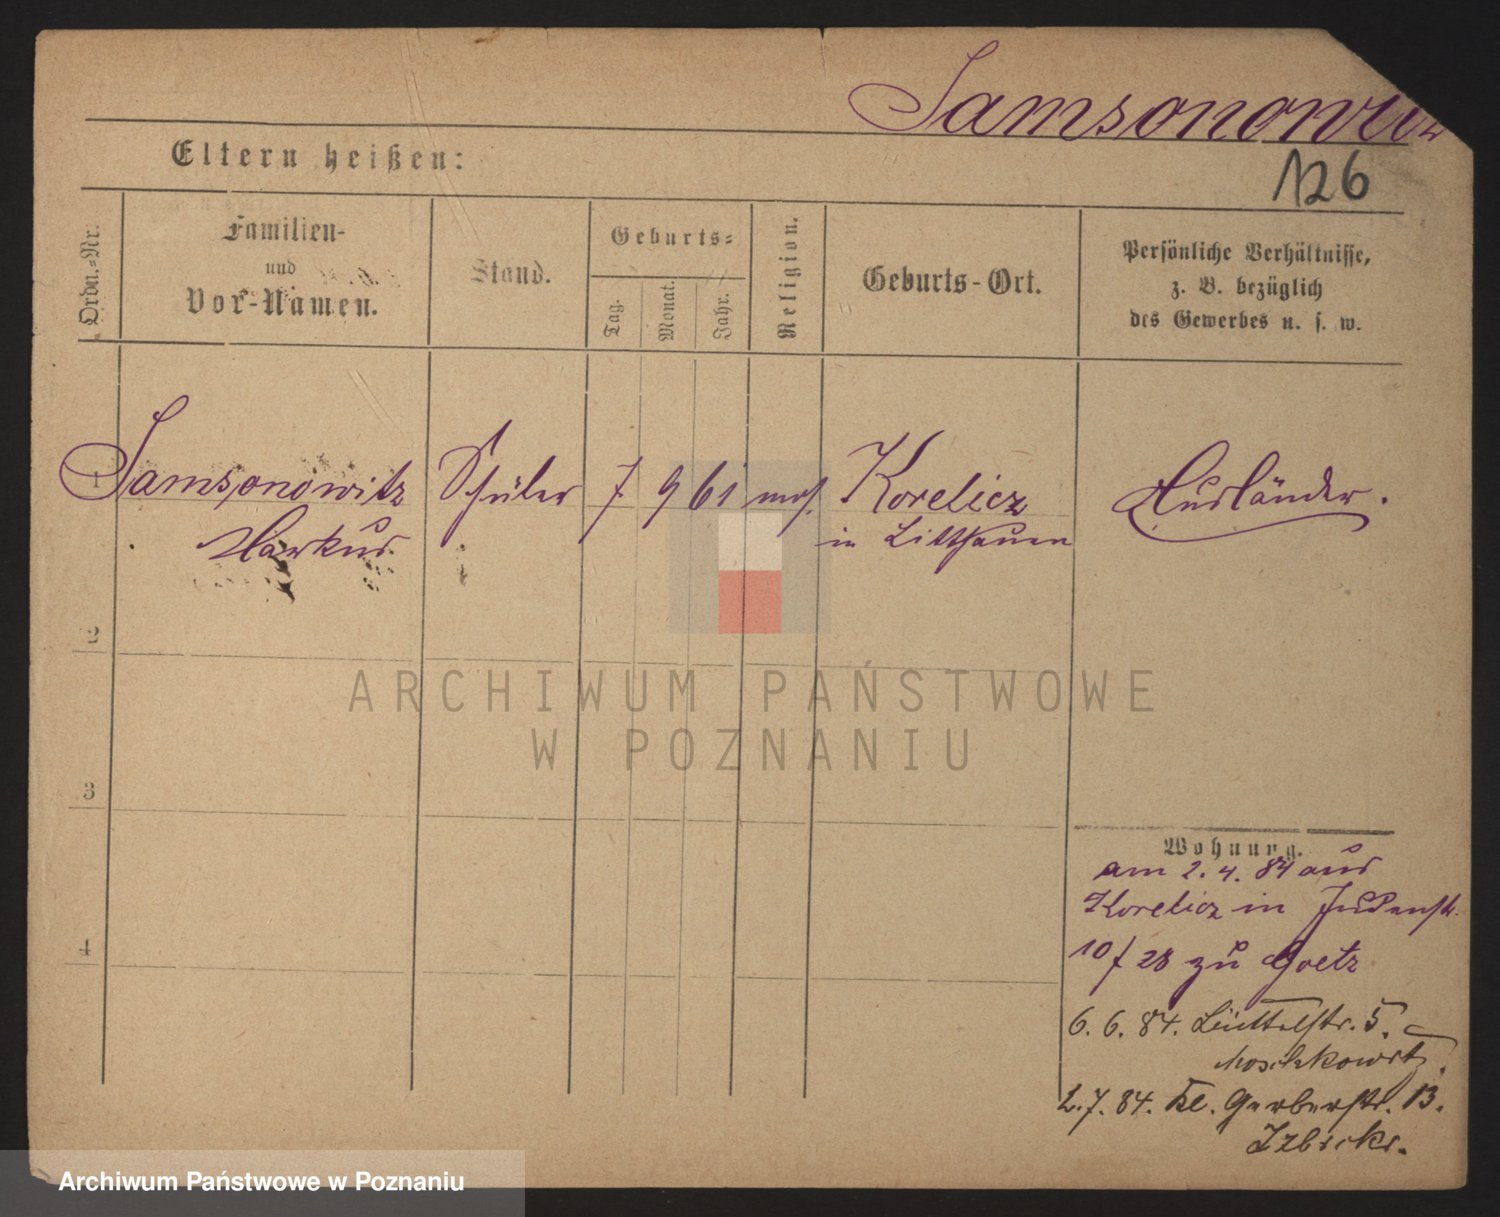 Samsonowicz
126
Eltern heißen:
Ordn.-Nr.
Familien-
und
Vor-Namen.
Stand.
Geburts-
Tag.
Monat.
Jahr.
Religion.
Geburts-Ort.
Persönliche Verhältnisse,
z. B. bezüglich
des Gewerbes u. s. w.
1 Samsonowitz Schüler 7 9 61 mos. Korelicz Ausländer.
Markus in Litthauen
2
3
4
Wohnung.
am 2. 4. 84 aus
Korelicz in Judenstr.
10/28 zu Goetz
6. 6. 84. Büttelstr. 5.
Moschkowitz.
2. 7. 84. Kl. Gerberstr. 13.
Izbicki.
ARCHIWUM PAŃSTWOWE
W POZNANIU
Archiwum Państwowe w Poznaniu